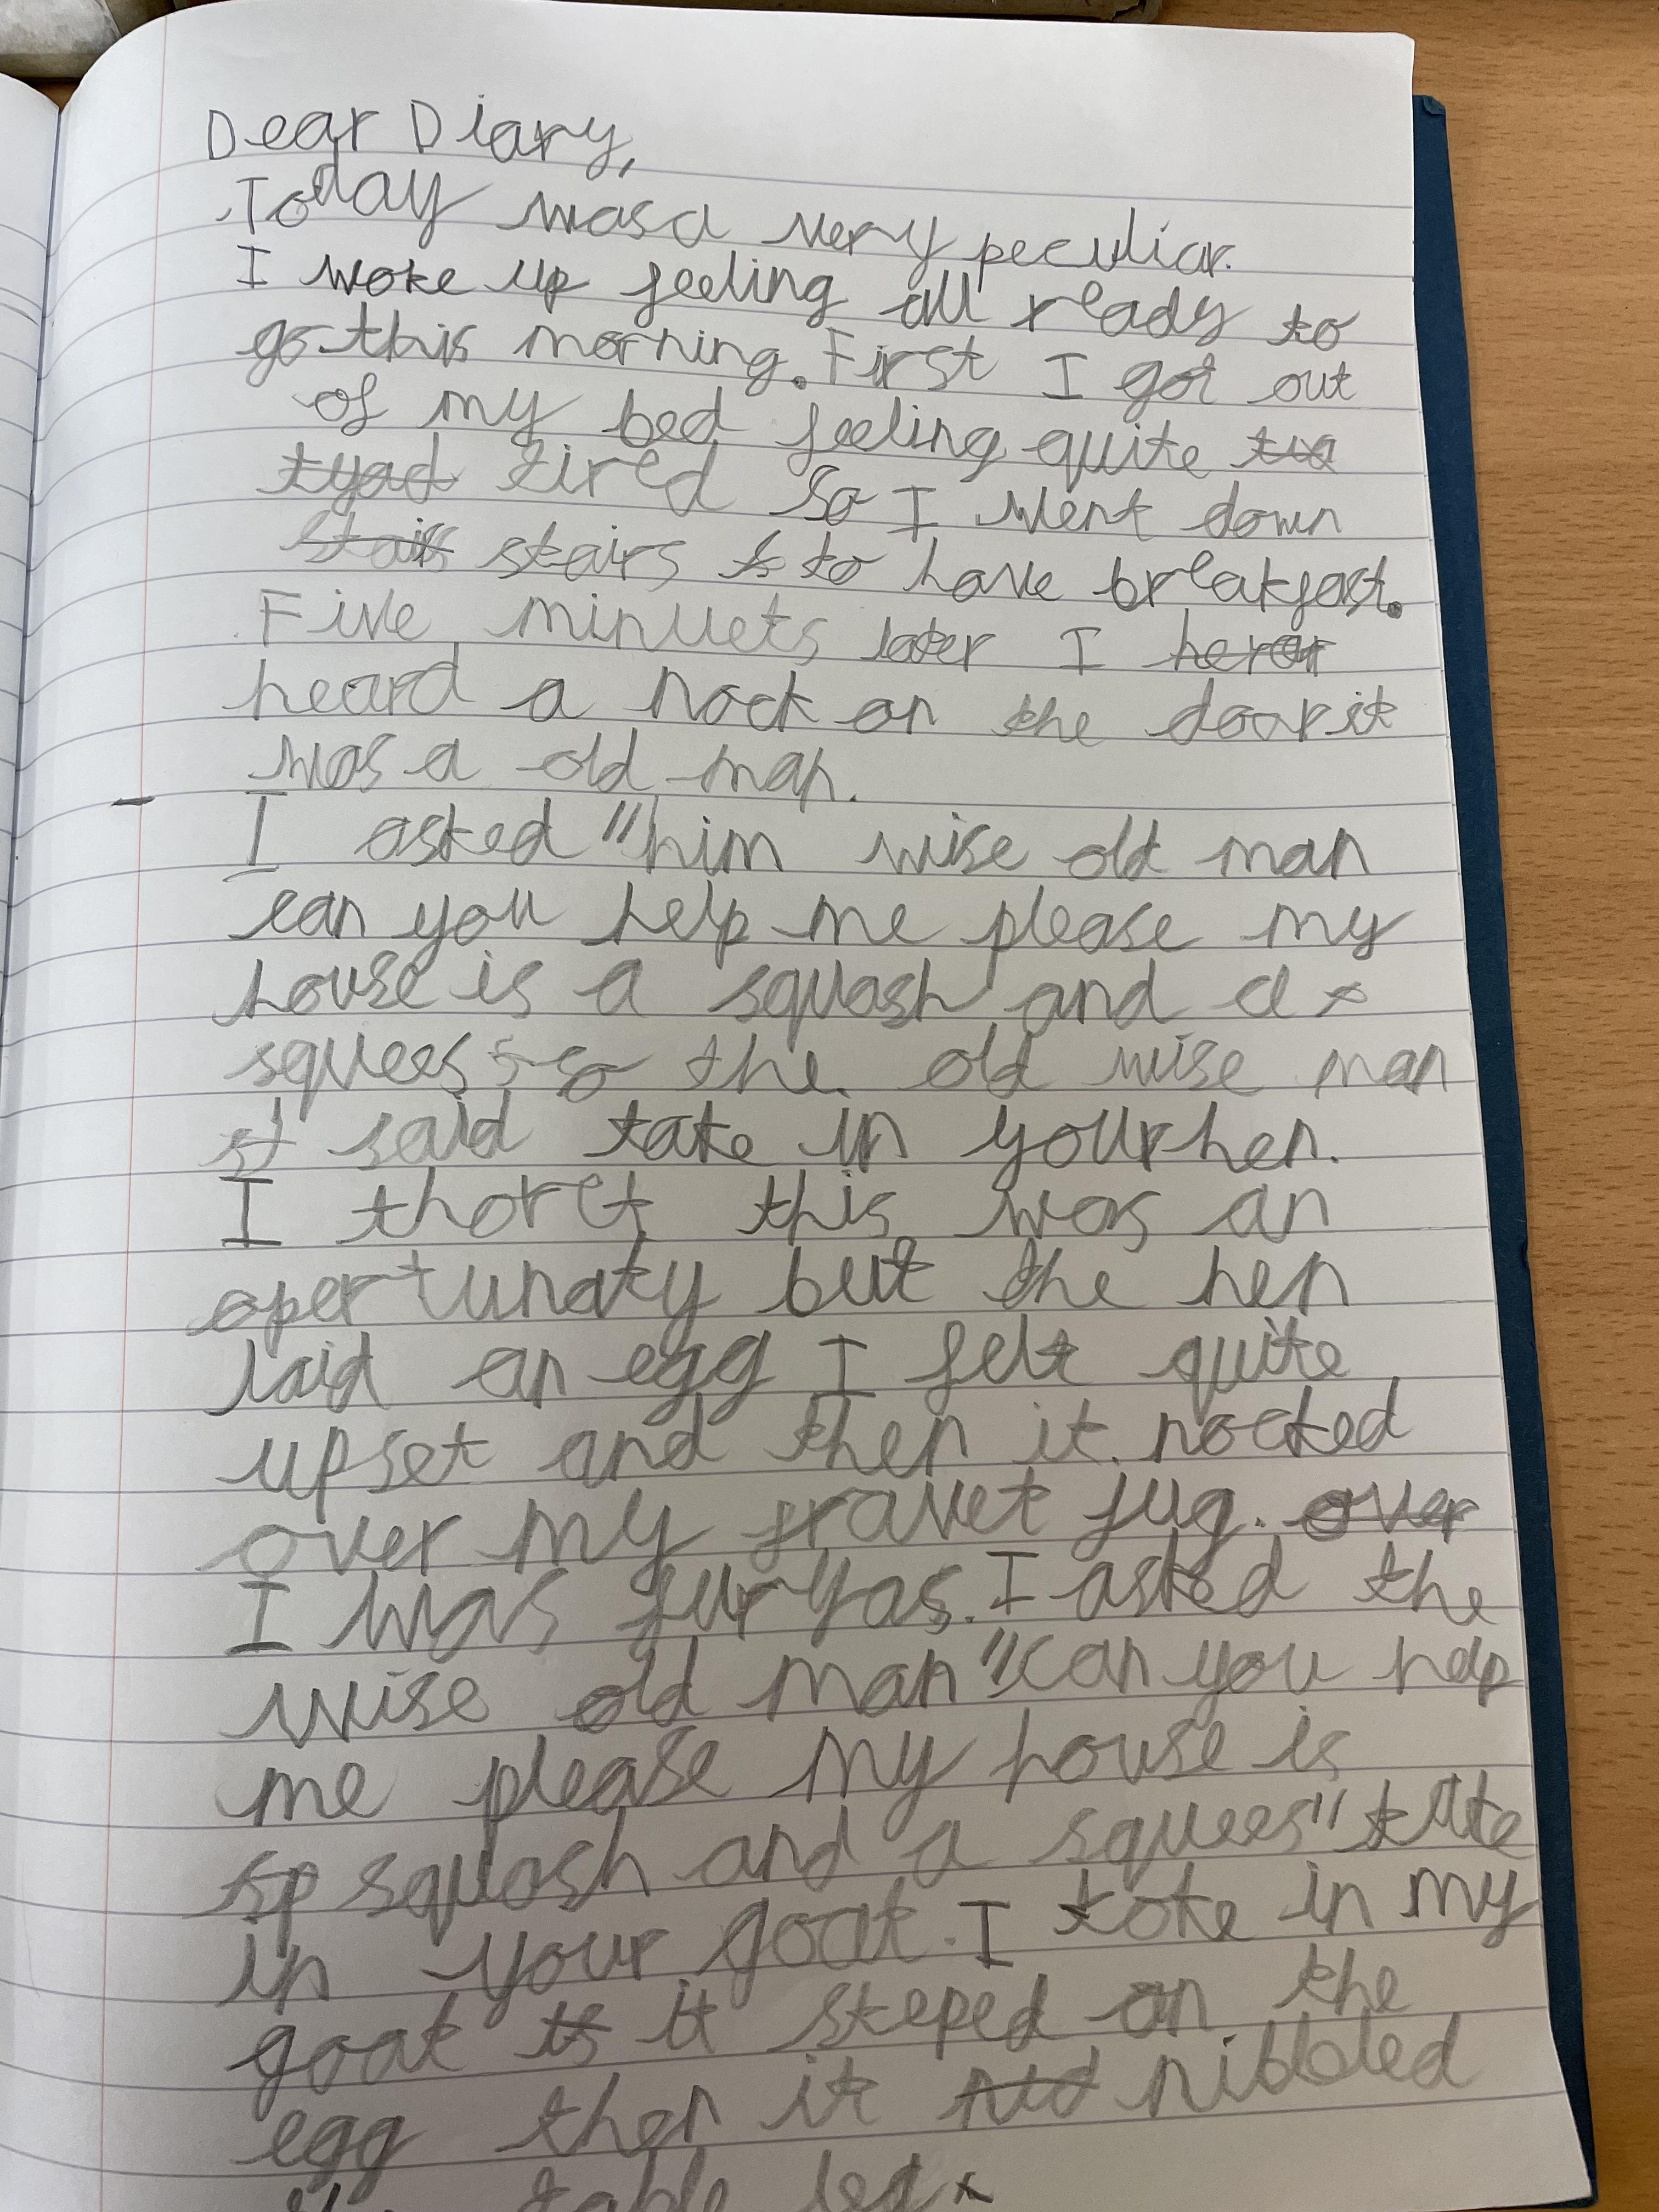 Dear Diary,
Today was a very peculiar.
I woke up feeling all ready to
go this morning. First I got out
of my bed feeling quite
tyad tired so I went down
stairs stairs to to have breakfast.
Five minuets later I herar
heard a nock on the door it
was a old man.
I asked "him wise old man
can you help me please my
house is a squash and a
squees so the old wise man
said take in your hen.
I thoret this was an
opertunaty but the hen
laid an egg I felt quite
upset and then it nocked
over my fravet jug. over
I was furyas. I asked the
wise old man "can you help
me please my house is
sp squash and a squees" take
in your goat. I toke in my
goat is it steped on the
egg then it nid nibbled
table leg